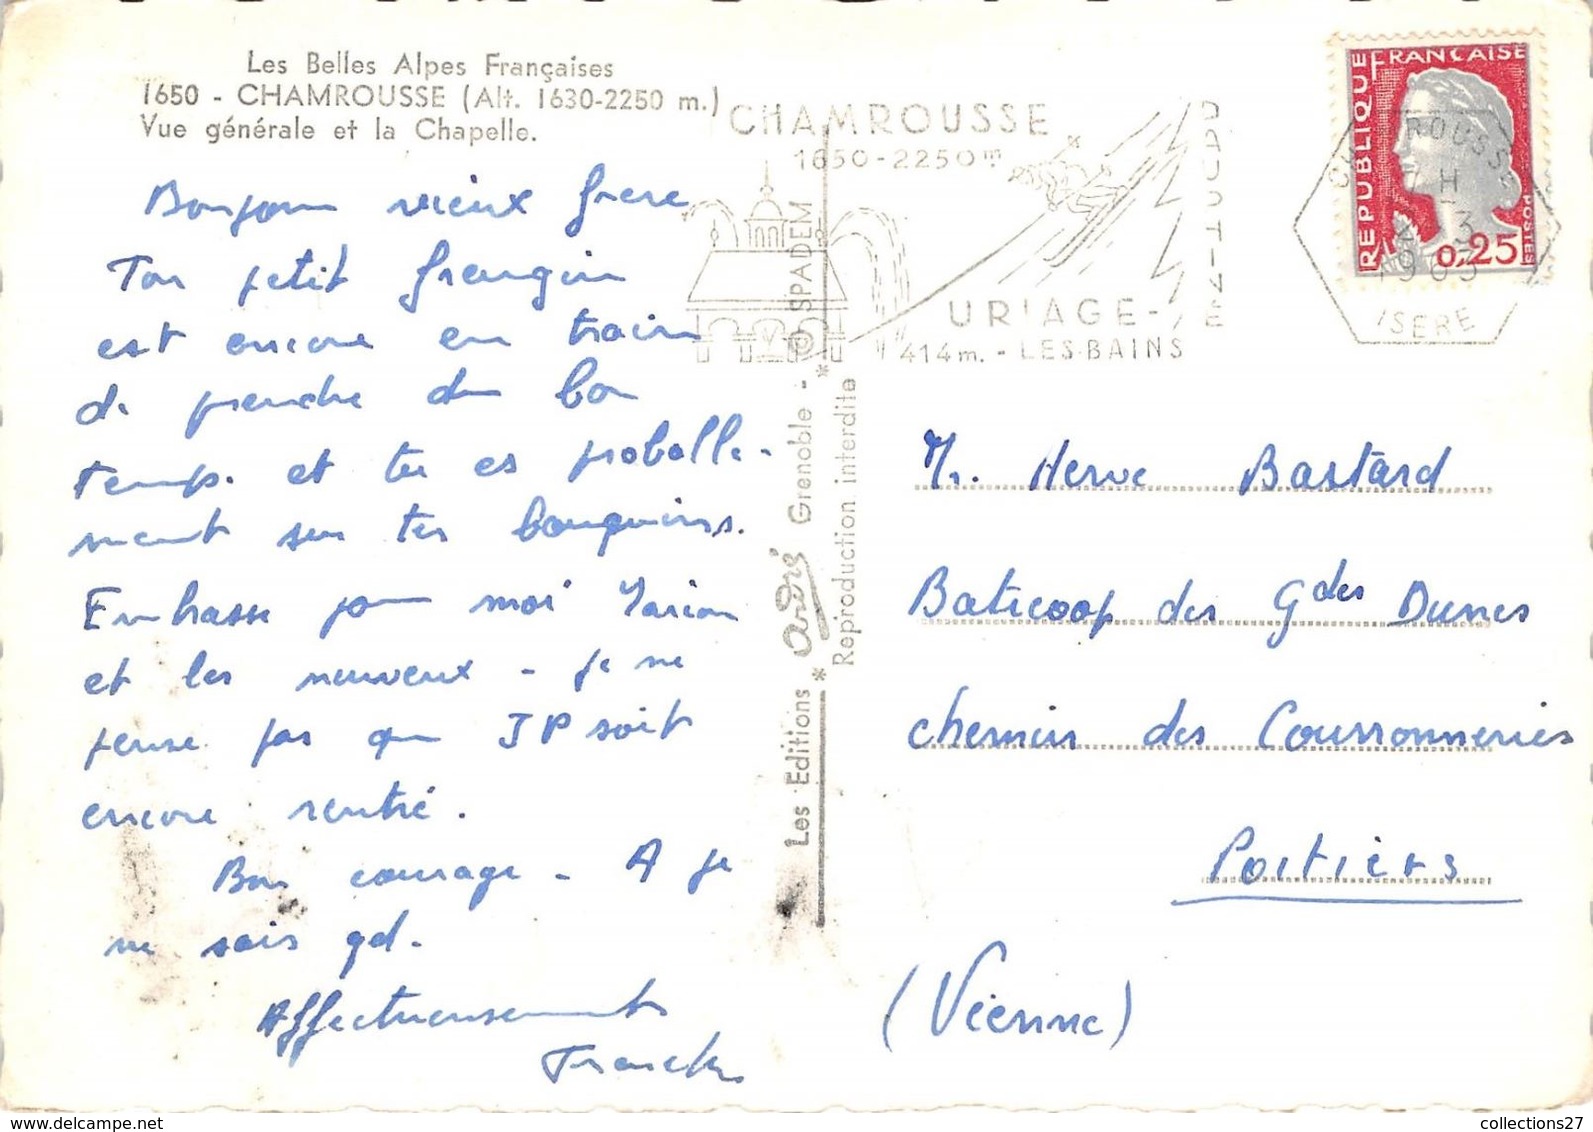 Les Belles Alpes Françaises
1650 - CHAMROUSSE (Alt. 1630-2250 m.)
Vue générale et la Chapelle.
Bonjour vieux frere
Ton petit frangin
est encore en train
de prendre du bon
temps. et tu es proballe-
ment sur tes bouquins.
Embrasse pour moi
et les neuveux - je ne
pense pas que JP soit
encore rentré.
Bon courage - A je
ne sais qd.
Affectueusement
Franck
Les Editions * André Grenoble - © SPADEM
Reproduction interdite
CHAMROUSSE
1650-2250m
URIAGE-
414m. - LES-BAINS
RÉPUBLIQUE FRANÇAISE
POSTES
0,25
CHAMROUSSE
ISERE
Mr. Herve Bastard
Baticoop des Gdes Dunes
chemin des Courronneries
Poitiers
(Vienne)
collections27